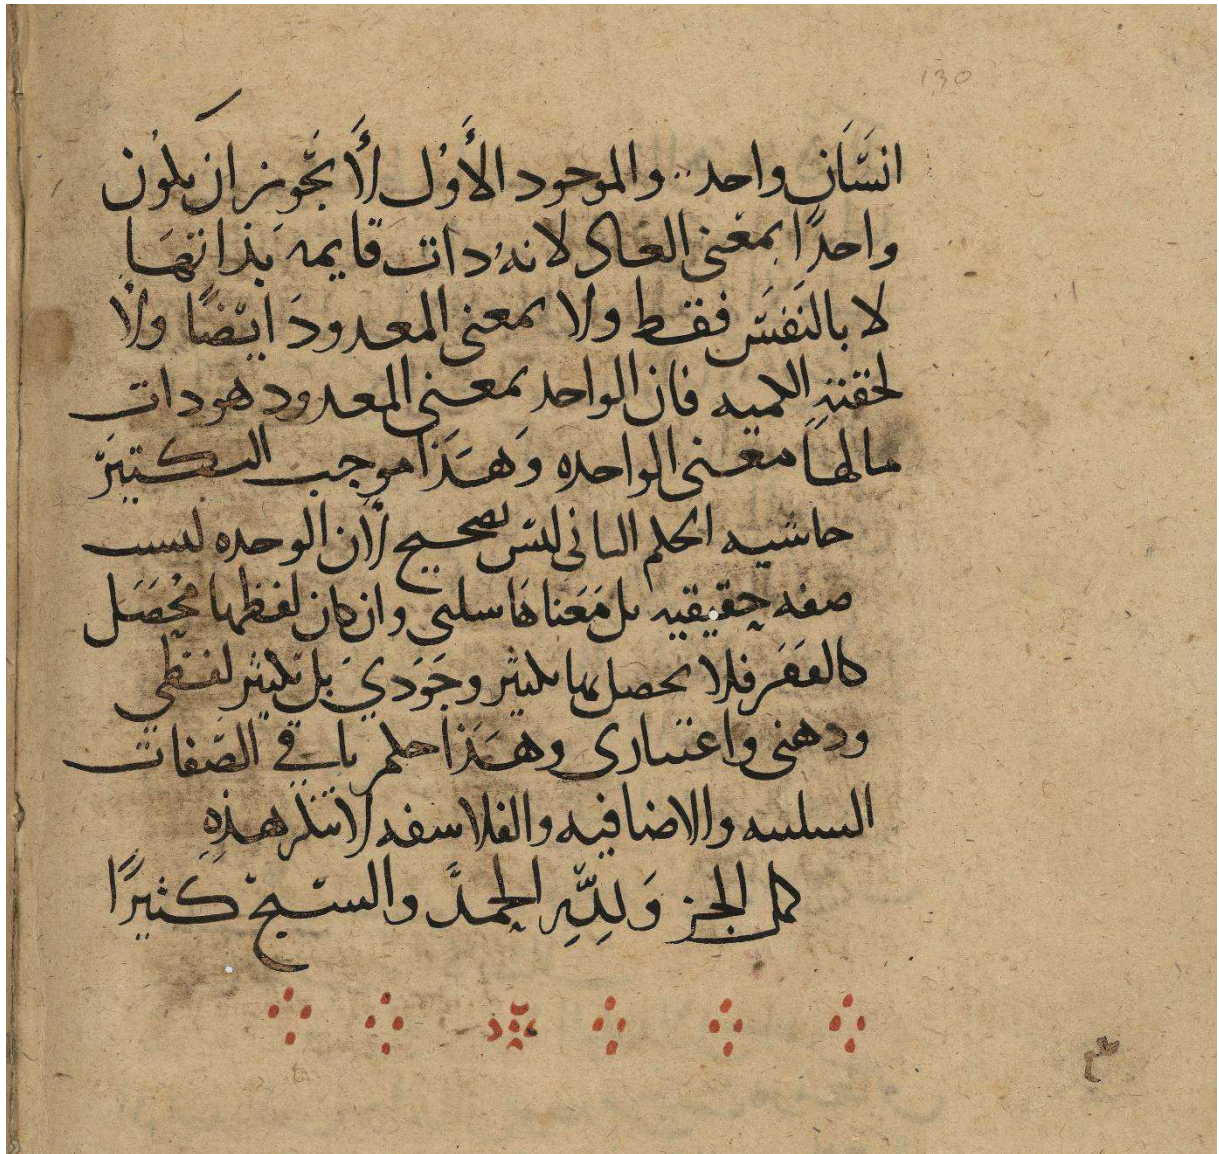 130
انسَان واحد .. والموجود الأول لا يجوز ان يكون
واحدًا بمعنى العاد لانه دات قايمه بذاتها
لا بالنفس فقط ولا بمعنى المعدود ايضًا ولا
لحقته الكميه فان الواحد بمعنى المعدود هو دات
ما لها معنى الواحده وهذا موجب التكتير
حاشيه الحكم التاني ليس بصحيح لان الوحده ليست
صفه حقيقيه بل معناها سلبى وان كان لفظها محصل
كالفقر فلا يحصل بها تكثير وجودي بل تكثير لفظي
ودهنى واعتبارى وهذا حكم باقي الصفات
السلبيه والاضافيه والفلاسفه لا تنكر هذهِ
كمل الجز وَلِلّهِ الحمدً والسبح كثيرًا